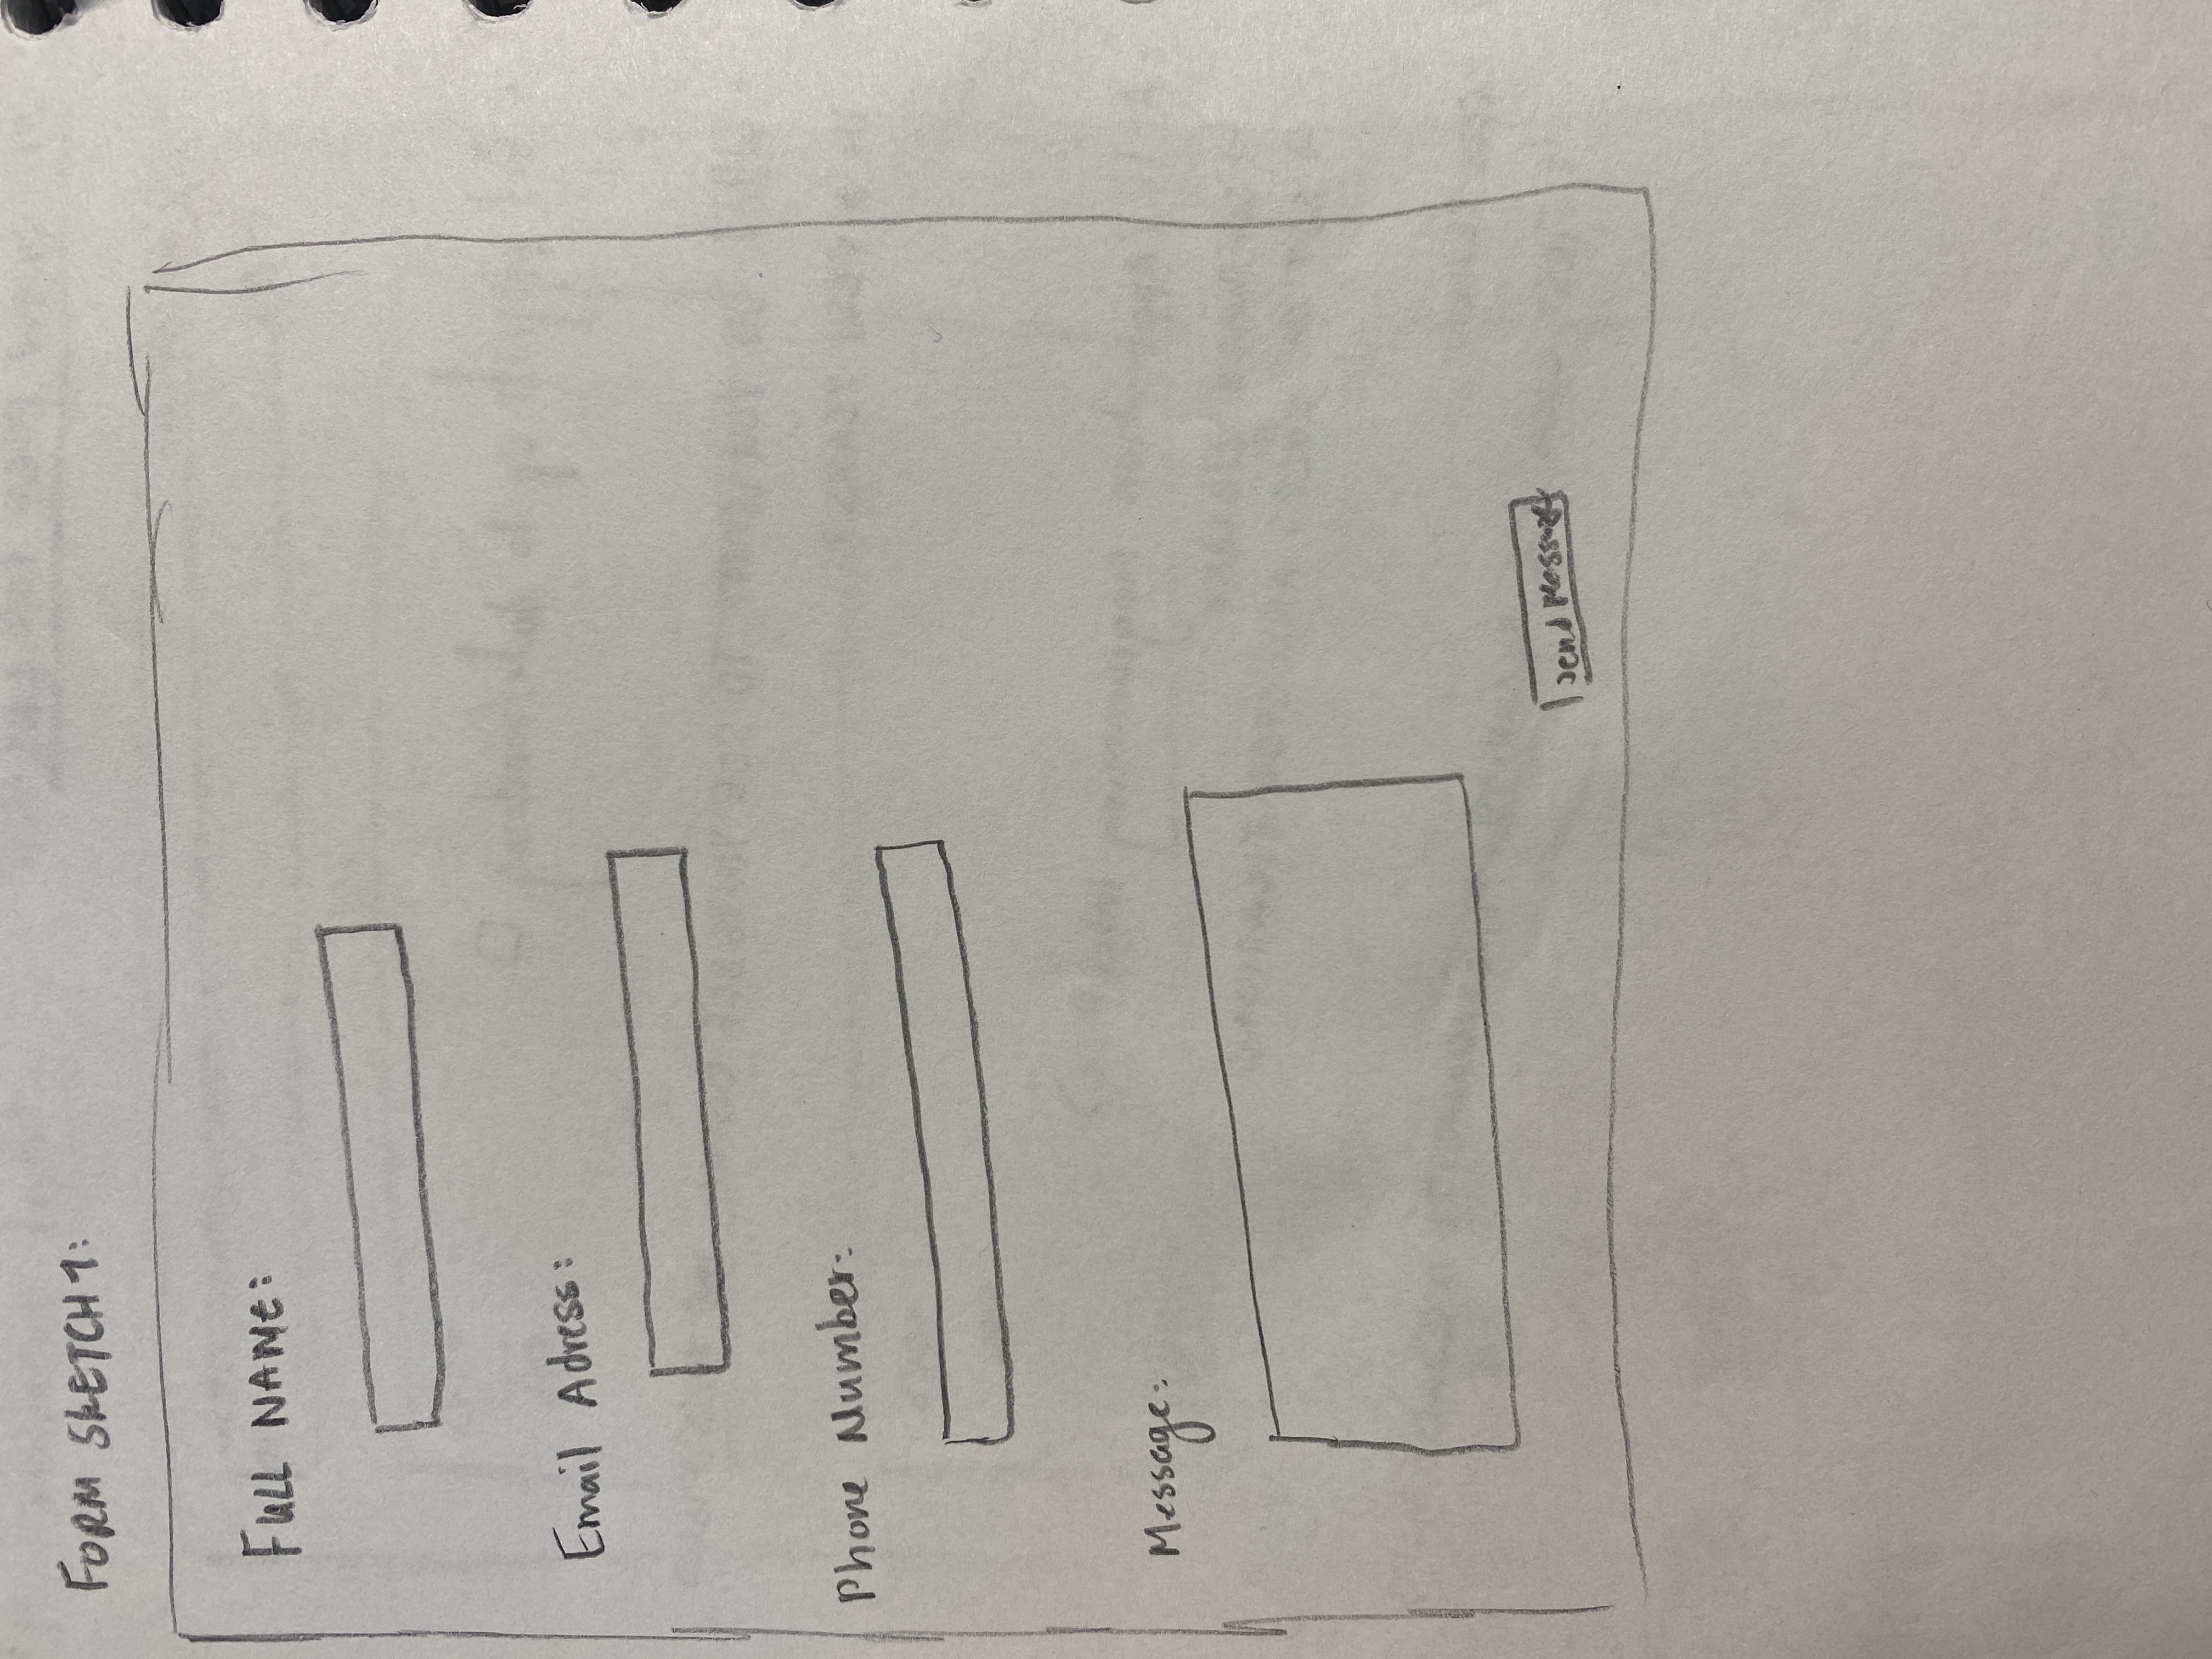 FORM SKETCH 1:
FULL NAME:
Email Adress:
Phone Number:
Message:
Send Message